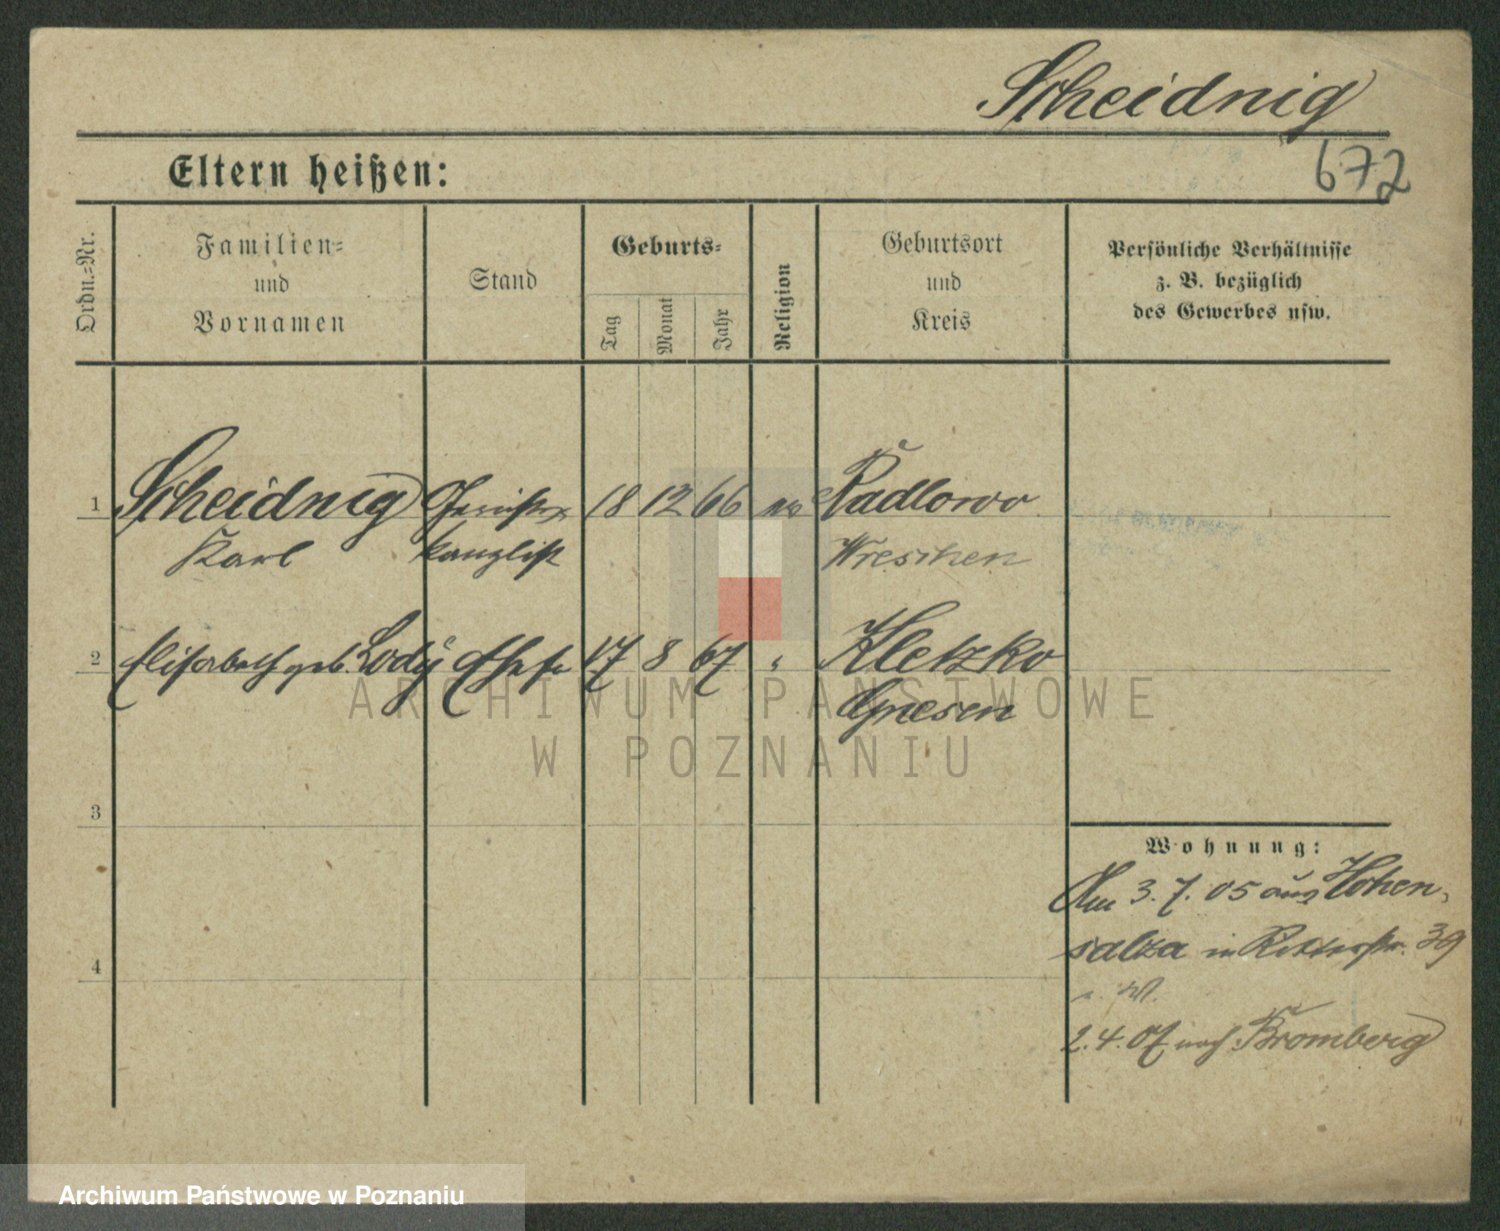 Scheidnig
672
Eltern heißen:
Ordn.-Nr.
Familien-
und
Vornamen
Stand
Geburts-
Tag
Monat
Jahr
Religion
Geburtsort
und
Kreis
Persönliche Verhältnisse
z. B. bezüglich
des Gewerbes usw.
1 Scheidnig Gerichts 18 12 66 ev Radlowo
Karl kanzlist Wreschen
2 Elisabeth geb. Lody Ehefr 17 8 67 " Kletzko
Gnesen
3
4
Wohnung:
Am 3.7.05 aus Hohen-
salza in Ritterstr. 39
2.4.07 nach Bromberg
ARCHIWUM PAŃSTWOWE
W POZNANIU
Archiwum Państwowe w Poznaniu